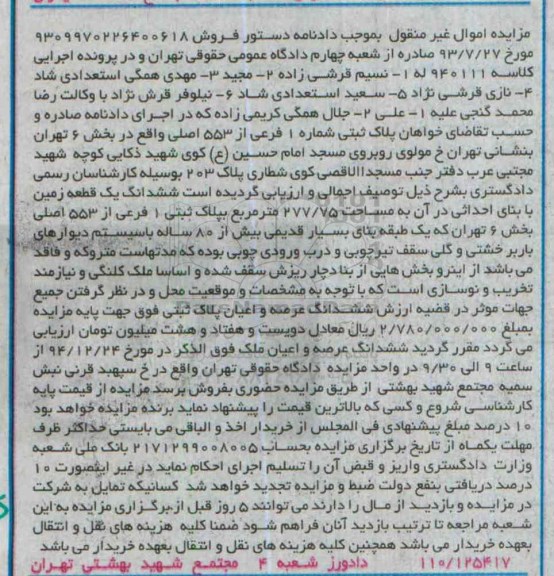 مزایده اموال غیر منقول بموجب دادنامه دستور فروش ۹۳۰۹۹۷۰۲۲۶۴۰۰۶۱۸
مورخ ۹۳/۷/۲۷ صادره از شعبه چهارم دادگاه عمومی حقوقی تهران و در پرونده اجرایی
کلاسه ۹۴۰۱۱۱ له ۱- نسیم قرشی زاده ۲- مجید ۳- مهدی همگی استعدادی شاد
۴- نازی قرشی نژاد ۵- سعید استعدادی شاد ۶- نیلوفر قرش نژاد با وکالت رضا
محمد گنجی علیه ۱- علی ۲- جلال همگی کریمی زاده که در اجرای دادنامه صادره و
حسب تقاضای خواهان پلاک ثبتی شماره ۱ فرعی از ۵۵۳ اصلی واقع در بخش ۶ تهران
بنشانی تهران خ مولوی روبروی مسجد امام حسین (ع) کوی شهید ذکایی کوچه شهید
مجتبی عرب دفتر جنب مسجدالاقصی کوی شطاری پلاک ۲۰۳ بوسیله کارشناسان رسمی
دادگستری بشرح ذیل توصیف اجمالی و ارزیابی گردیده است ششدانگ یک قطعه زمین
با بنای احداثی در آن به مساحت ۲۷۷/۷۵ مترمربع بپلاک ثبتی ۱ فرعی از ۵۵۳ اصلی
بخش ۶ تهران که یک طبقه بنای بسیار قدیمی بیش از ۸۰ ساله باسیستم دیوارهای
باربر خشتی و گلی سقف تیرچوبی و درب ورودی چوبی بوده که مدتهاست متروکه و فاقد
می باشد از اینرو بخش هایی از بنا دچار ریزش سقف شده و اساسا ملک کلنگی و نیازمند
تخریب و نوسازی است که با توجه به مشخصات و موقعیت محل و در نظر گرفتن جمیع
جهات موثر در قضیه ارزش ششدانگ عرصه و اعیان پلاک ثبتی فوق جهت پایه مزایده
بمبلغ ۲/۷۸۰/۰۰۰/۰۰۰ ریال معادل دویست و هفتاد و هشت میلیون تومان ارزیابی
می گردد مقرر گردید ششدانگ عرصه و اعیان ملک فوق الذکر در مورخ ۹۴/۱۲/۲۴ از
ساعت ۹ الی ۹/۳۰ در واحد مزایده دادگاه حقوقی تهران واقع در خ سپهبد قرنی نبش
سمیه مجتمع شهید بهشتی از طریق مزایده حضوری بفروش برسد مزایده از قیمت پایه
کارشناسی شروع و کسی که بالاترین قیمت را پیشنهاد نماید برنده مزایده خواهد بود
۱۰ درصد مبلغ پیشنهادی فی المجلس از خریدار اخذ و الباقی می بایستی حداکثر ظرف
مهلت یکماه از تاریخ برگزاری مزایده بحساب ۲۱۷۱۲۹۹۰۰۸۰۰۵ بانک ملی شعبه
وزارت دادگستری واریز و قبض آن را تسلیم اجرای احکام نماید در غیر اینصورت ۱۰
درصد دریافتی بنفع دولت ضبط و مزایده تجدید خواهد شد کسانیکه تمایل به شرکت
در مزایده و بازدید از مال را دارند می توانند ۵ روز قبل از برگزاری مزایده به این
شعبه مراجعه تا ترتیب بازدید آنان فراهم شود ضمنا کلیه هزینه های نقل و انتقال
بعهده خریدار می باشد همچنین کلیه هزینه های نقل و انتقال بعهده خریدار می باشد
۱۱۰/۱۲۵۴۱۷ دادورز شعبه ۴ مجتمع شهید بهشتی تهران